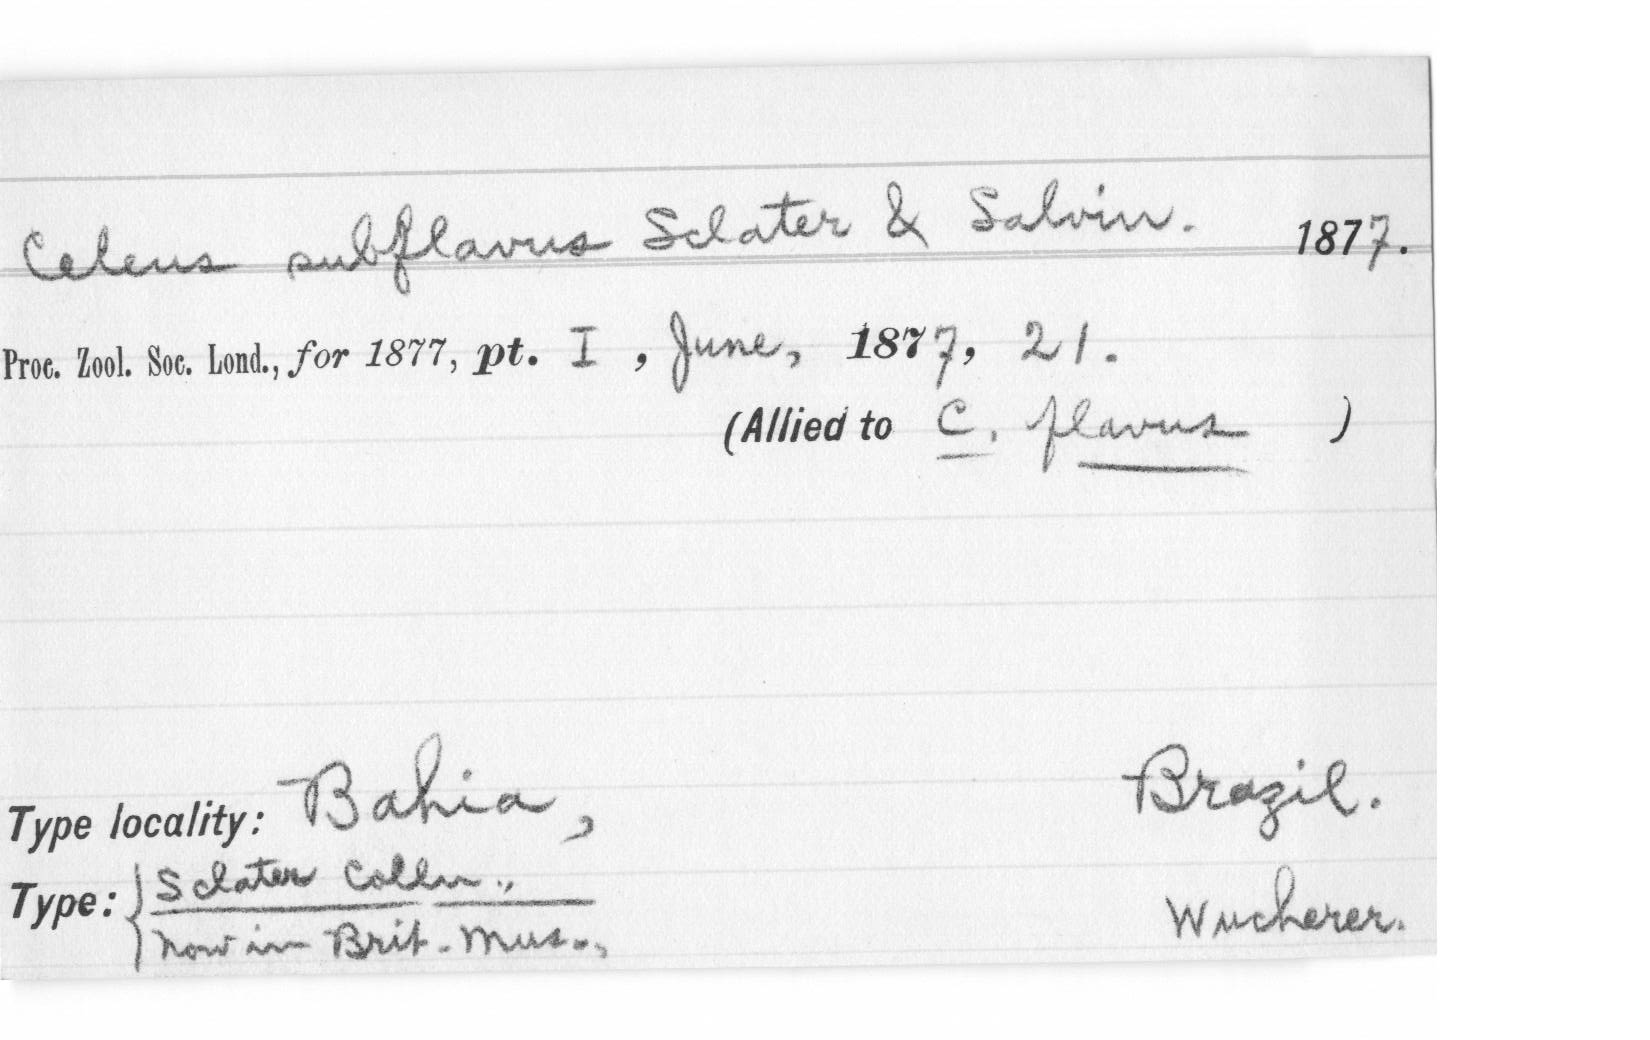 Celeus subflavus Sclater & Salvin. 1877.
Proc. Zool. Soc. Lond., for 1877, pt. I, June, 1877, 21.
(Allied to C. flavus )
Type locality: Bahia, Brazil.
Type: { Sclater Colln.,
now in Brit. Mus., Wucherer.